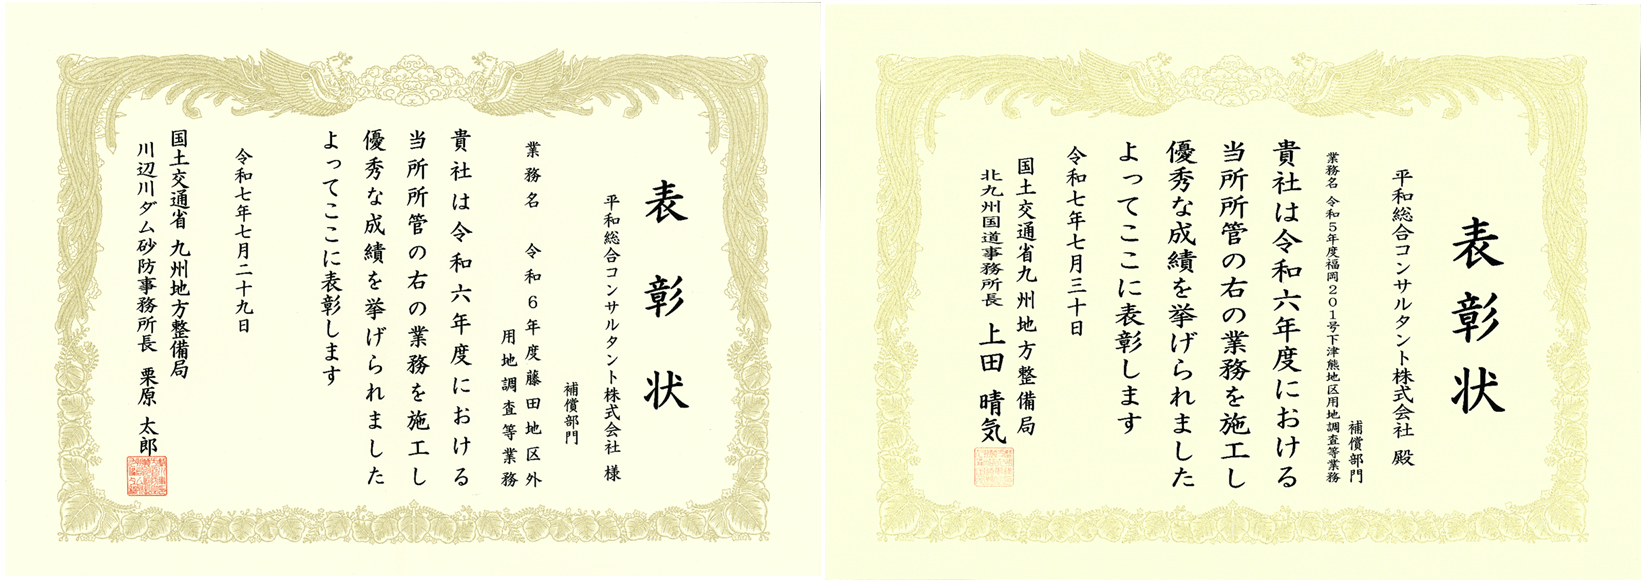 表彰状
平和総合コンサルタント株式会社 様
補償部門
業務名 令和6年度藤田地区外
用地調査等業務
貴社は令和六年度における
当所所管の右の業務を施工し
優秀な成績を挙げられました
よってここに表彰します
令和七年七月二十九日
国土交通省 九州地方整備局
川辺川ダム砂防事務所長 栗原 太郎
表彰状
平和総合コンサルタント株式会社 殿
補償部門
業務名 令和5年度福岡201号下津熊地区用地調査等業務
貴社は令和六年度における
当所所管の右の業務を施工し
優秀な成績を挙げられました
よってここに表彰します
令和七年七月三十日
国土交通省九州地方整備局
北九州国道事務所長 上田 晴気